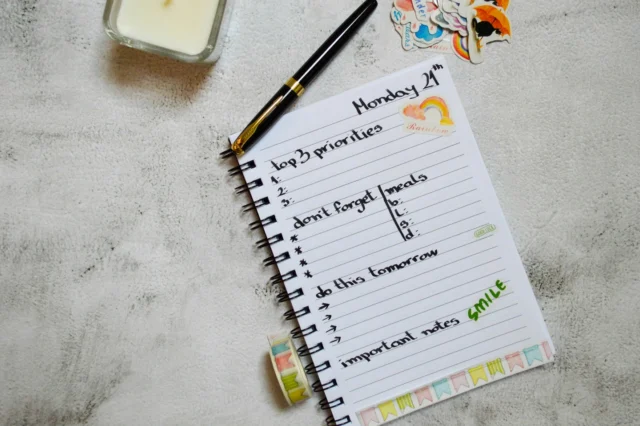 Monday 21th
Rainbow
top 3 priorities
1:
2:
3:
don't forget
*
*
*
*
meals
b:
L:
s:
d:
do this tomorrow
→
→
→
→
important notes
SMILE